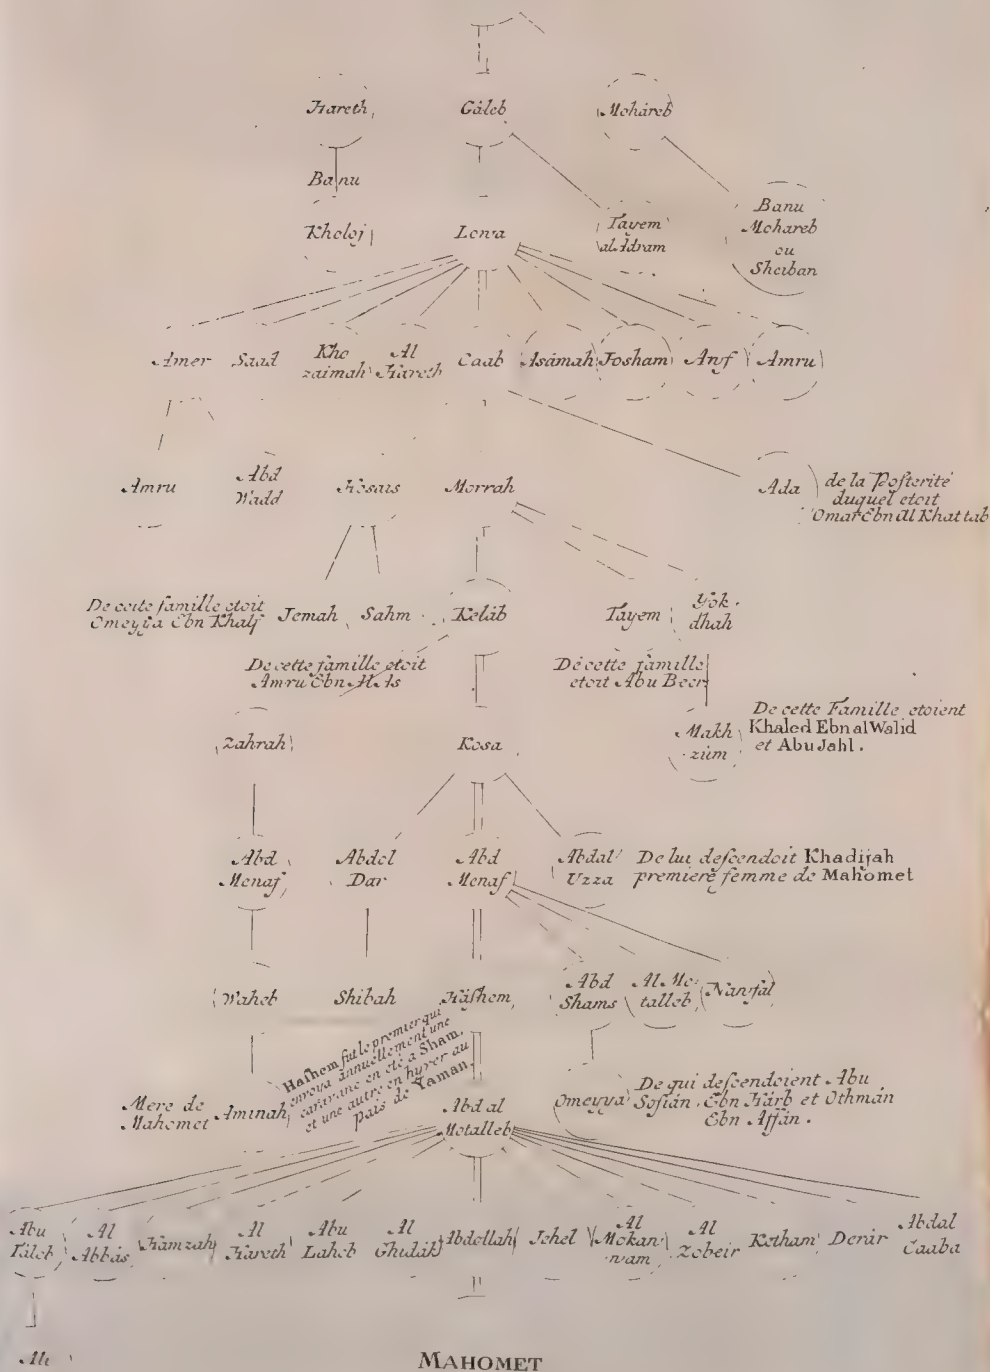 Hareth
Gâleb
Mohâreb
Banu
Kholoj
Lowa
Tayem
al Idram
Banu
Mohareb
ou
Sheiban
Amer
Saad
Kho
zaimah
Al
Hareth
Caab
Asâmah
Josham
Awf
Amru
Amru
Abd
Wadd
Hosais
Morrah
Ada
de la Posterité
duquel etoit
Omar Ebn Al Khattab
De cette famille etoit
Omeyya Ebn Khalf
Jemah
Sahm
Kelâb
Tayem
Yok
dhah
De cette famille etoit
Amru Ebn Al As
De cette famille
etoit Abu Becr
Zahrah
Kosa
Makh
zûm
De cette Famille etoient
Khaled Ebn al Walid
et Abu Jahl.
Abd
Menaf
Abdel
Dar
Abd
Menaf
Abdal
Uzza
De lui descendoit Khadijah
premiere femme de Mahomet
Waheb
Shibah
Hâshem
Abd
Shams
Al Mo
talleb
Nawfal
Hashem fut le premier qui
envoya annuellement une
caravane en eté a Sham,
et une autre en hyver au
païs de Yaman.
Mere de
Mahomet
Aminah
Abd al
Motalleb
Omeyya
De qui descendoient Abu
Sofiân. Ebn Hârb et Othmân
Ebn Affân.
Abu
Tâleb
Al
Abbâs
Hamzah
Al
Hareth
Abu
Laheb
Al
Ghidâk
Abdollah
Jehel
Al
Mokaw
wam
Al
Zobeir
Ketham
Derâr
Abdal
Caaba
Ali
MAHOMET